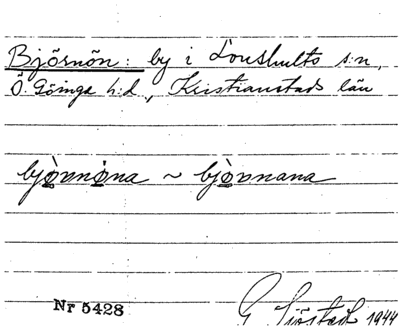 Björnön: by i Loushults sn,
Ö. Göinge h:d, Kristianstads län
bjòvnòna ~ bjòvnana
Nr 5428
G Sjöstedt 1944